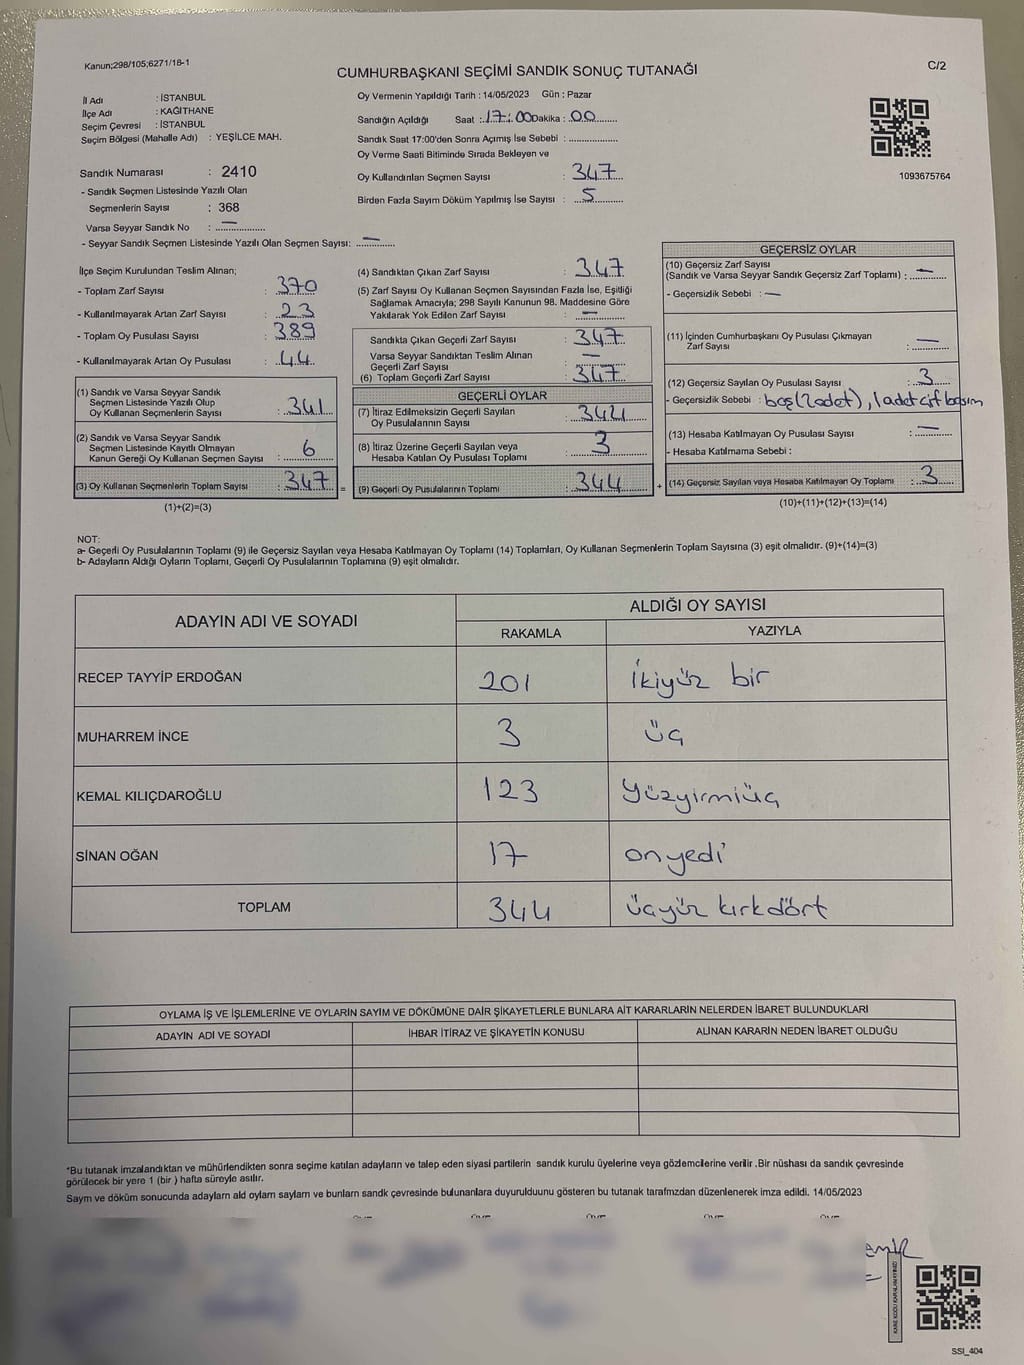 Kanun;298/105;6271/18-1
CUMHURBAŞKANI SEÇİMİ SANDIK SONUÇ TUTANAĞI
C/2
İl Adı : İSTANBUL
İlçe Adı : KAĞITHANE
Seçim Çevresi : İSTANBUL
Seçim Bölgesi (Mahalle Adı) : YEŞİLCE MAH.
Oy Vermenin Yapıldığı Tarih : 14/05/2023 Gün : Pazar
Sandığın Açıldığı Saat : 17:00 Dakika : 00
Sandık Saat 17:00'den Sonra Açımış İse Sebebi :
Oy Verme Saati Bitiminde Sırada Bekleyen ve
Oy Kullandırılan Seçmen Sayısı : 347
Birden Fazla Sayım Döküm Yapılmış İse Sayısı : 5
1093675764
Sandık Numarası : 2410
- Sandık Seçmen Listesinde Yazılı Olan
Seçmenlerin Sayısı : 368
Varsa Seyyar Sandık No : —
- Seyyar Sandık Seçmen Listesinde Yazılı Olan Seçmen Sayısı: —
İlçe Seçim Kurulundan Teslim Alınan;
- Toplam Zarf Sayısı : 370
- Kullanılmayarak Artan Zarf Sayısı : 23
- Toplam Oy Pusulası Sayısı : 389
- Kullanılmayarak Artan Oy Pusulası : 44
(1) Sandık ve Varsa Seyyar Sandık
Seçmen Listesinde Yazılı Olup
Oy Kullanan Seçmenlerin Sayısı : 341
(2) Sandık ve Varsa Seyyar Sandık
Seçmen Listesinde Kayıtlı Olmayan
Kanun Gereği Oy Kullanan Seçmen Sayısı : 6
(3) Oy Kullanan Seçmenlerin Toplam Sayısı : 347 =
(1)+(2)=(3)
(4) Sandıktan Çıkan Zarf Sayısı : 347
(5) Zarf Sayısı Oy Kullanan Seçmen Sayısından Fazla İse, Eşitliği
Sağlamak Amacıyla; 298 Sayılı Kanunun 98. Maddesine Göre
Yakılarak Yok Edilen Zarf Sayısı : —
Sandıkta Çıkan Geçerli Zarf Sayısı : 347
Varsa Seyyar Sandıktan Teslim Alınan
Geçerli Zarf Sayısı : —
(6) Toplam Geçerli Zarf Sayısı : 347
GEÇERLİ OYLAR
(7) İtiraz Edilmeksizin Geçerli Sayılan
Oy Pusulalarının Sayısı : 344
(8) İtiraz Üzerine Geçerli Sayılan veya
Hesaba Katılan Oy Pusulası Toplamı : 3
(9) Geçerli Oy Pusulalarının Toplamı : 344 +
GEÇERSİZ OYLAR
(10) Geçersiz Zarf Sayısı
(Sandık ve Varsa Seyyar Sandık Geçersiz Zarf Toplamı) : —
- Geçersizlik Sebebi : —
(11) İçinden Cumhurbaşkanı Oy Pusulası Çıkmayan
Zarf Sayısı : —
(12) Geçersiz Sayılan Oy Pusulası Sayısı : 3
- Geçersizlik Sebebi : boş(2adet), 1adet çift basım
(13) Hesaba Katılmayan Oy Pusulası Sayısı : —
- Hesaba Katılmama Sebebi :
(14) Geçersiz Sayılan veya Hesaba Katılmayan Oy Toplamı : 3
(10)+(11)+(12)+(13)=(14)
NOT:
a- Geçerli Oy Pusulalarının Toplamı (9) ile Geçersiz Sayılan veya Hesaba Katılmayan Oy Toplamı (14) Toplamları, Oy Kullanan Seçmenlerin Toplam Sayısına (3) eşit olmalıdır. (9)+(14)=(3)
b- Adayların Aldığı Oyların Toplamı, Geçerli Oy Pusulalarının Toplamına (9) eşit olmalıdır.
ADAYIN ADI VE SOYADI
ALDIĞI OY SAYISI
RAKAMLA YAZIYLA
RECEP TAYYİP ERDOĞAN 201 ikiyüz bir
MUHARREM İNCE 3 üç
KEMAL KILIÇDAROĞLU 123 Yüzyirmiüç
SİNAN OĞAN 17 onyedi
TOPLAM 344 üçyüz kırkdört
OYLAMA İŞ VE İŞLEMLERİNE VE OYLARIN SAYIM VE DÖKÜMÜNE DAİR ŞİKAYETLERLE BUNLARA AİT KARARLARIN NELERDEN İBARET BULUNDUKLARI
ADAYIN ADI VE SOYADI İHBAR İTİRAZ VE ŞİKAYETİN KONUSU ALINAN KARARIN NEDEN İBARET OLDUĞU
*Bu tutanak imzalandıktan ve mühürlendikten sonra seçime katılan adayların ve talep eden siyasi partilerin sandık kurulu üyelerine veya gözlemcilerine verilir .Bir nüshası da sandık çevresinde
görülecek bir yere 1 (bir ) hafta süreyle asılır.
Sayım ve döküm sonucunda adayların ald oyların sayların ve bunların sandk çevresinde bulunanlara duyurulduunu gösteren bu tutanak tarafmzdan düzenlenerek imza edildi. 14/05/2023
SSI_404